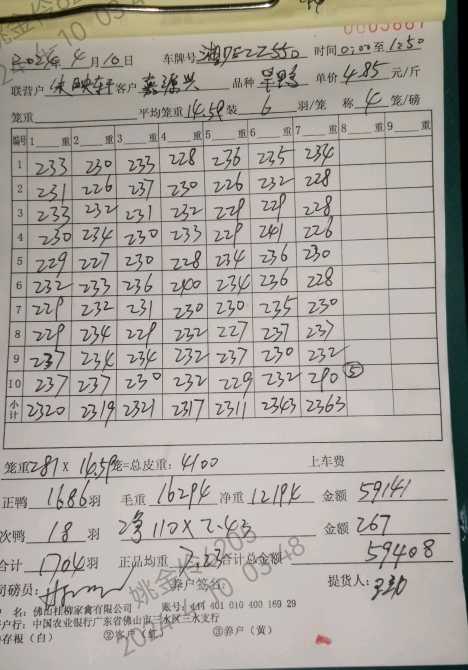 0003661
2024年 4月 10日 车牌号 湘DFZZ550 时间 0:00至1250
联营户 客户 嘉源兴 品种 旱鸭 单价 4.85 元/斤
笼重 平均笼重 14.59 装 6 羽/笼 称 4 笼/磅
编号 1 重 2 重 3 重 4 重 5 重 6 重 7 重 8 重 9 重
1 233 230 233 228 236 235 234
2 231 226 237 230 226 232 228
3 233 232 231 232 229 229 228
4 230 234 230 233 229 241 226
5 229 227 230 228 234 236 230
6 232 233 236 240 234 236 228
7 229 232 231 230 230 235 230
8 229 234 229 232 227 237 237
9 237 234 234 232 237 230 232
10 237 237 230 232 229 232 290 ⑤
小计 2320 2319 2321 2317 2311 2343 2363
笼重281 X 14.59笼=总皮重: 4100 上车费
正鸭 1686 羽 毛重 16294 净重 12194 金额 59141
次鸭 18 羽 净 110 X 2.43 金额 267
合计 1704 羽 正品均重 7.23 合计总金额 59408
司磅员: 养户签名 提货人:
户 名: 佛山桂柳家禽有限公司 账号: 444 401 010 400 169 29
开户行: 中国农业银行广东省佛山市三水区三水支行
①存根(白) ②客户(红) ③养户(黄)
姚金怜6203
2024 4 10 03:48